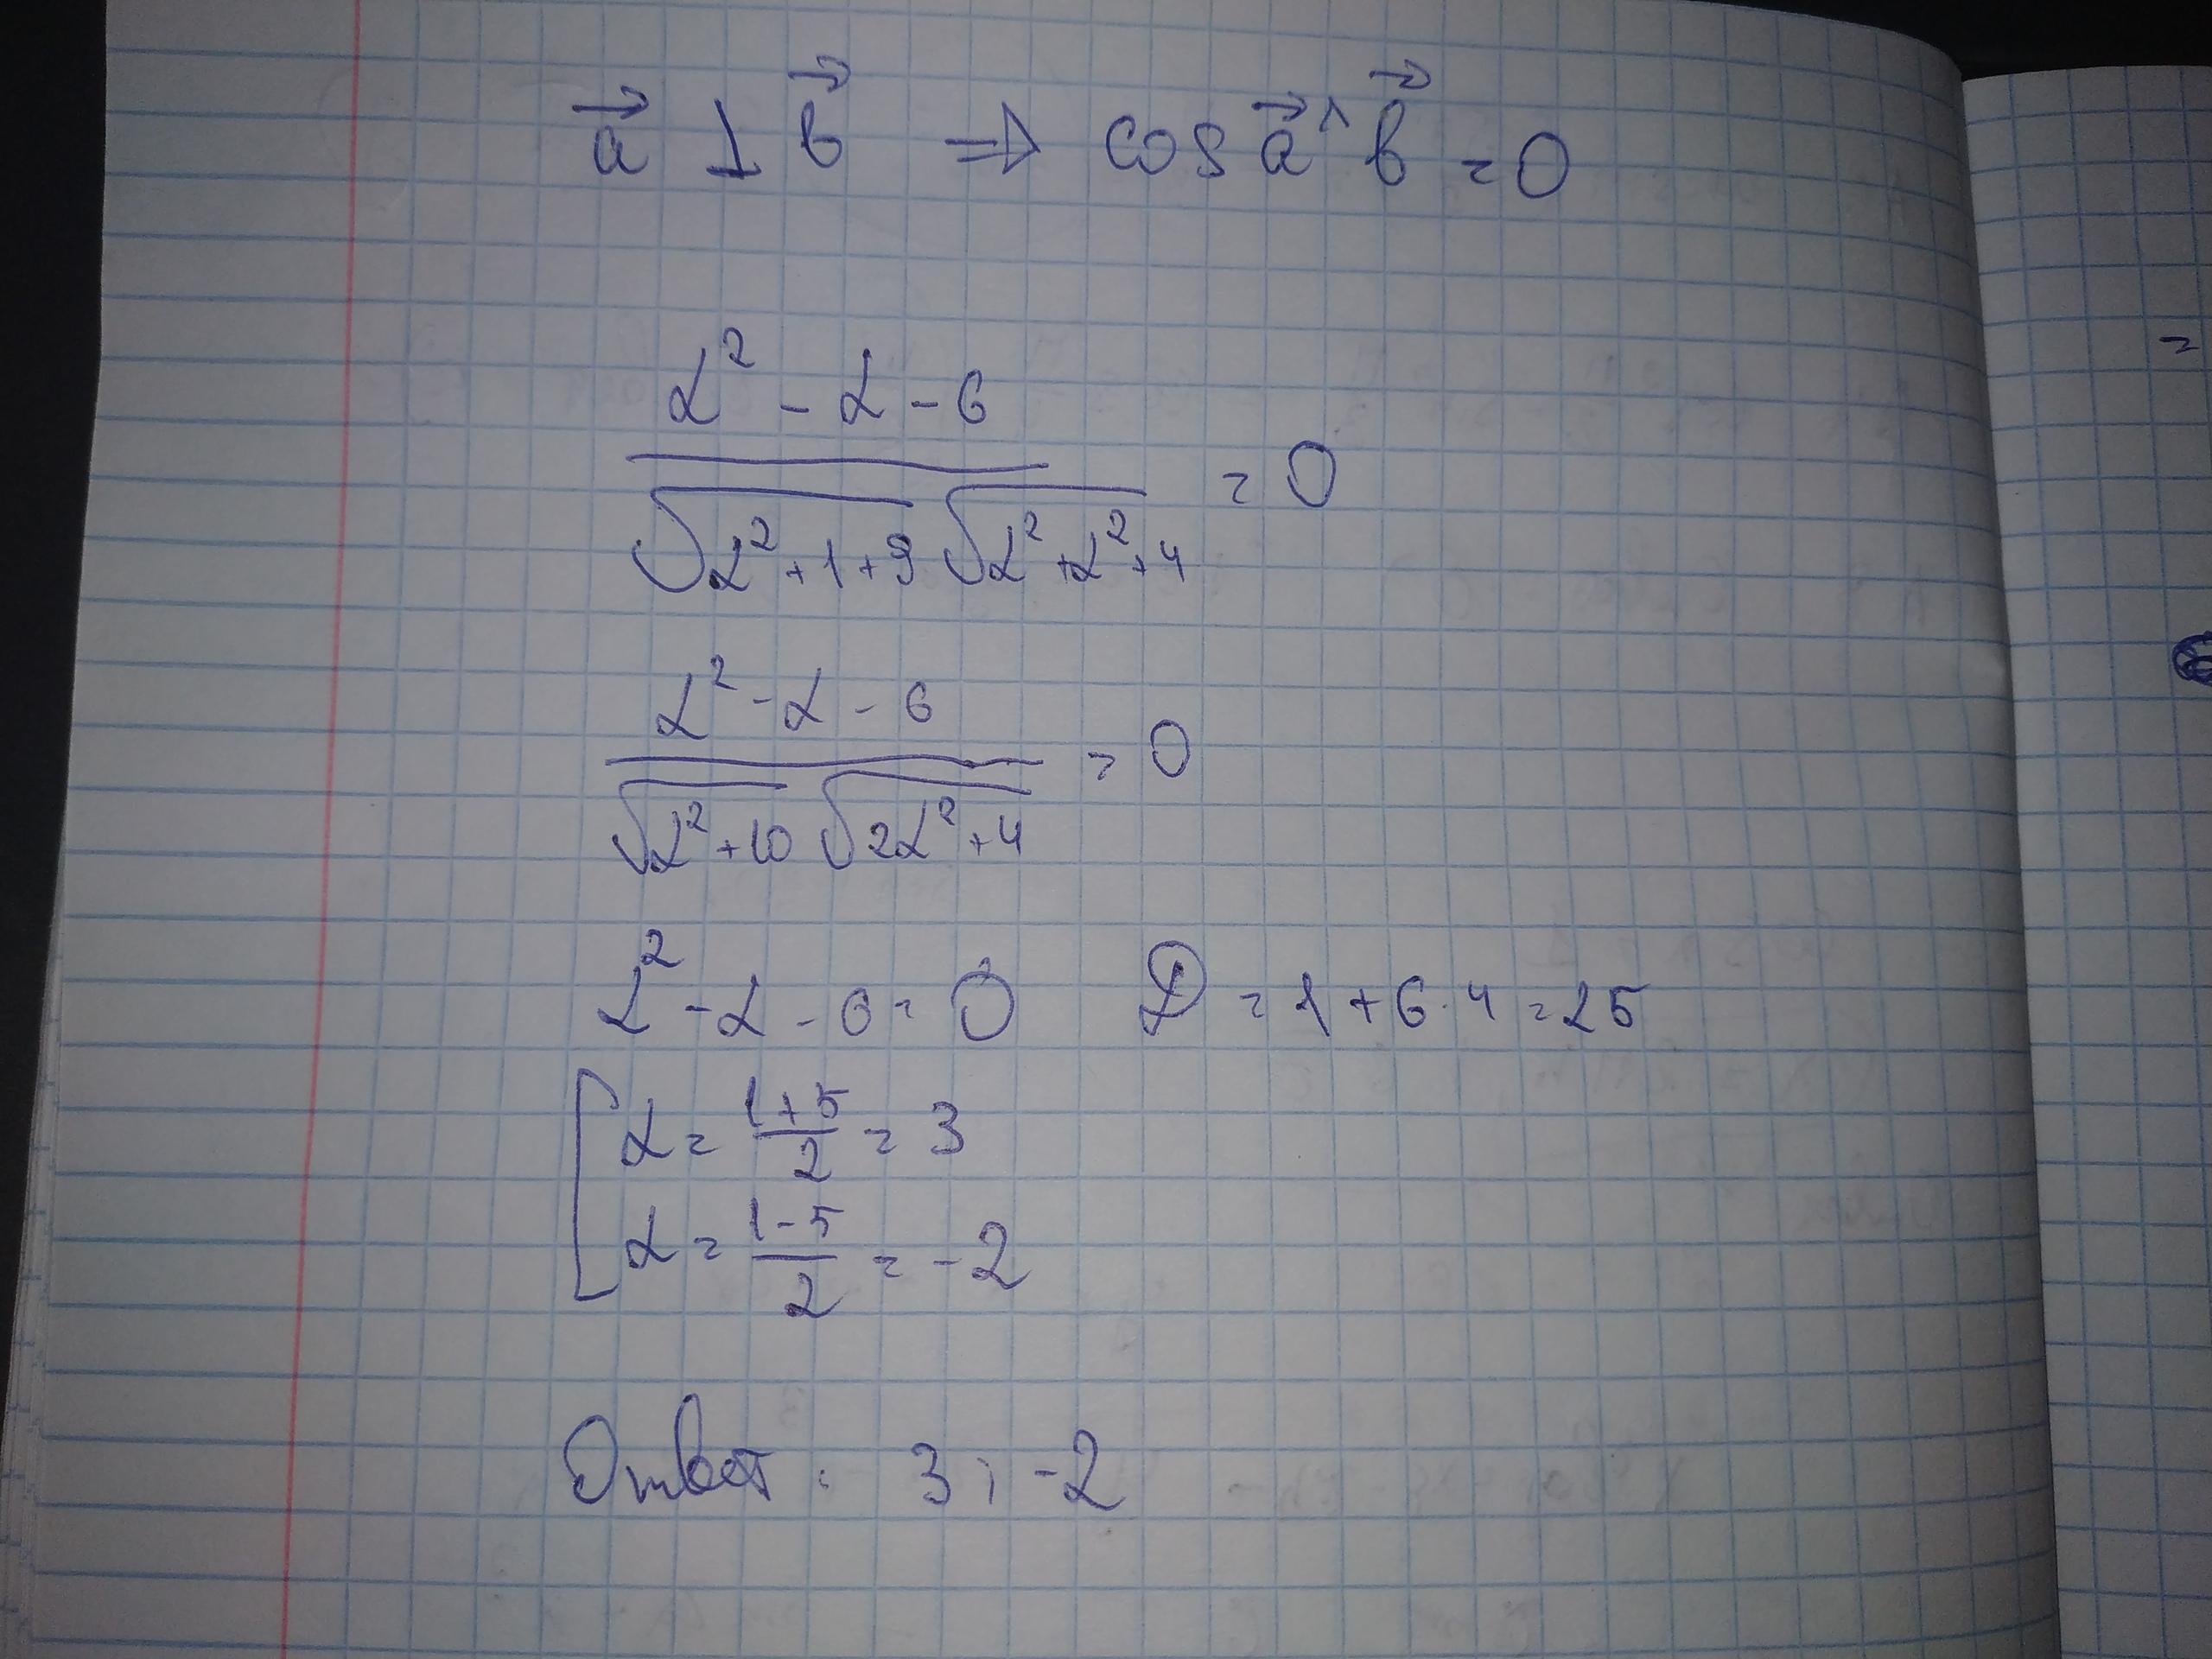 a⃗ ⊥ b⃗ ⇒ cos a⃗ ^ b⃗ = 0
α² - α - 6
√(α² + 1 + 9) √(α² + α² + 4) = 0
α² - α - 6
√(α² + 10) √(2α² + 4) = 0
α² - α - 6 = 0 D = 1 + 6 · 4 = 25
[ α = (1+5)/2 = 3
α = (1-5)/2 = -2
Ответ: 3; -2
=